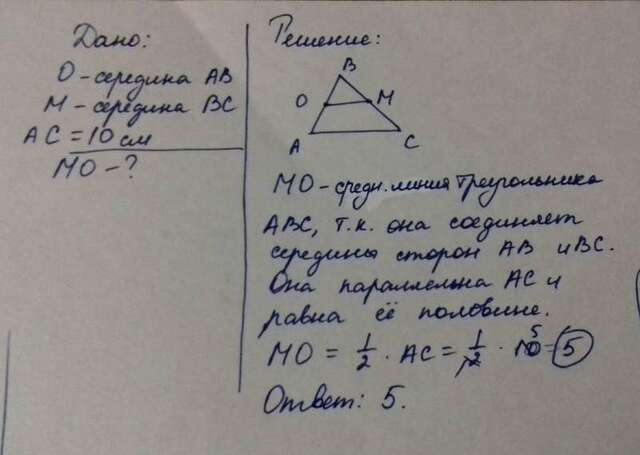 Дано:
O - середина AB
M - середина BC
AC = 10 см
MO - ?
Решение:
B
O
M
A
C
MO - средн. линия треугольника
ABC, т.к. она соединяет
середины сторон AB и BC.
Она параллельна AC и
равна её половине.
MO = 1/2 · AC = 1/2 · 10 5 = 5
Ответ: 5.